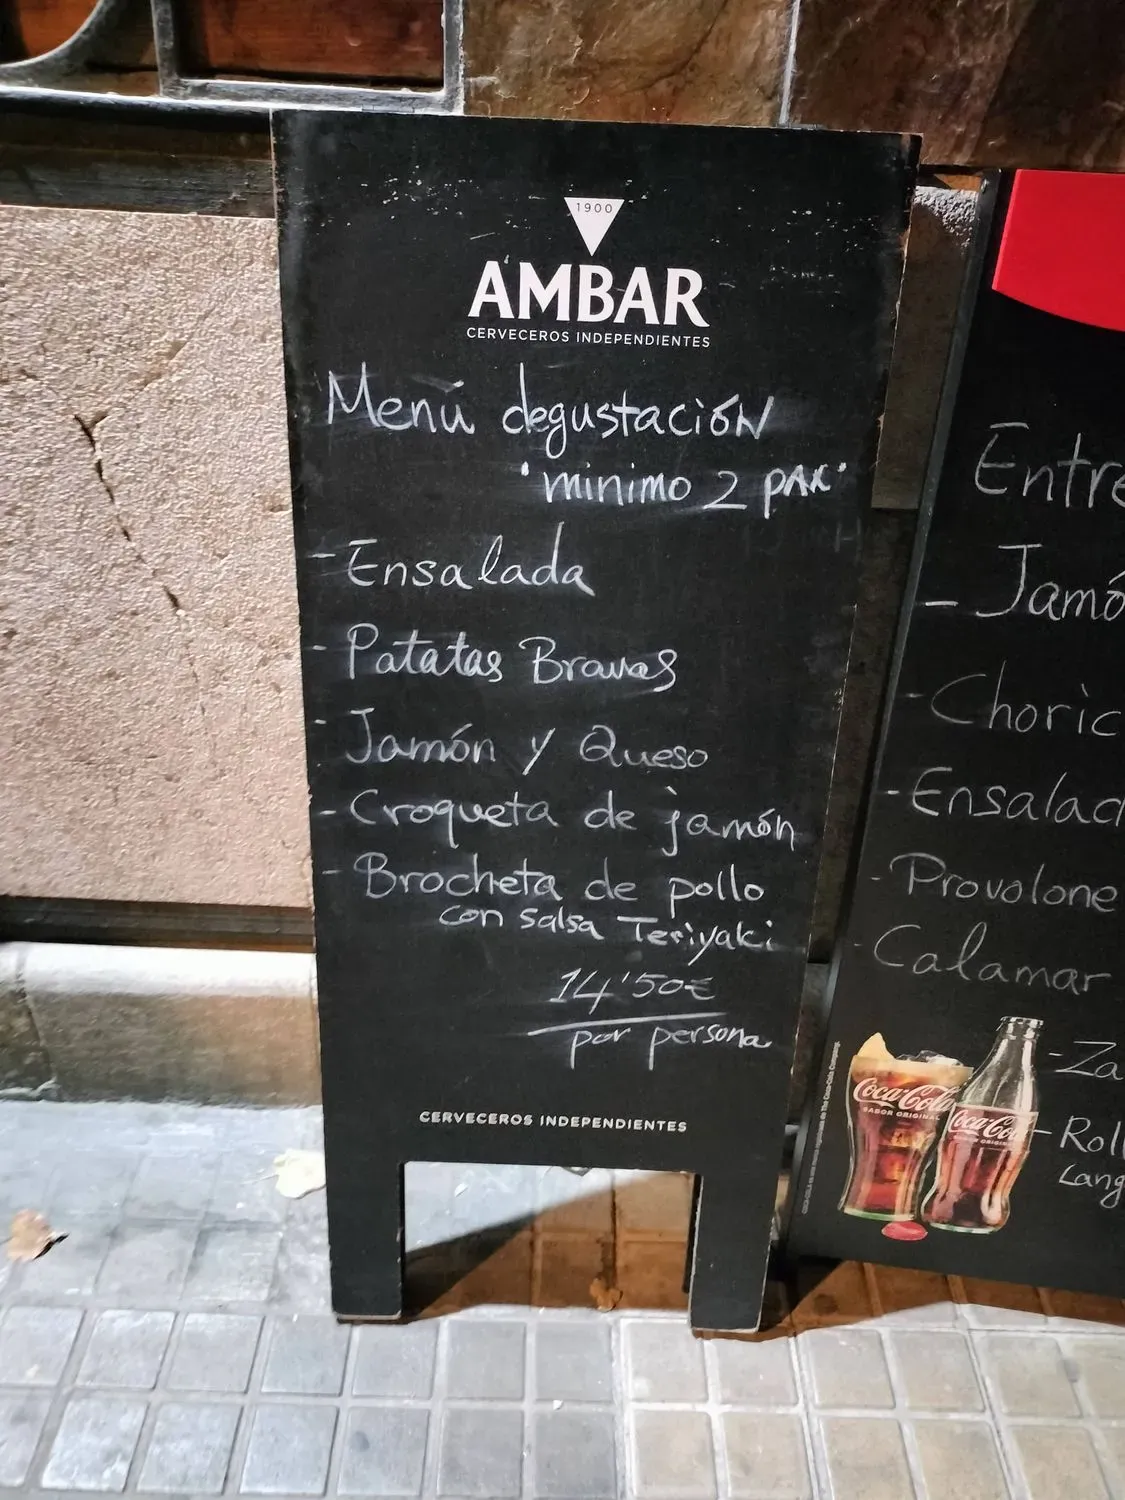 1900
AMBAR
CERVECEROS INDEPENDIENTES
Menú degustación
"minimo 2 PAX"
- Ensalada
- Patatas Bravas
- Jamón y Queso
- Croqueta de jamón
- Brocheta de pollo
con salsa Teriyaki
14'50€
por persona
CERVECEROS INDEPENDIENTES
Entre
- Jamó
- Choric
- Ensalad
- Provolone
- Calamar
- Za
- Roll
Lang
Coca-Cola
SABOR ORIGINAL
Coca-Cola